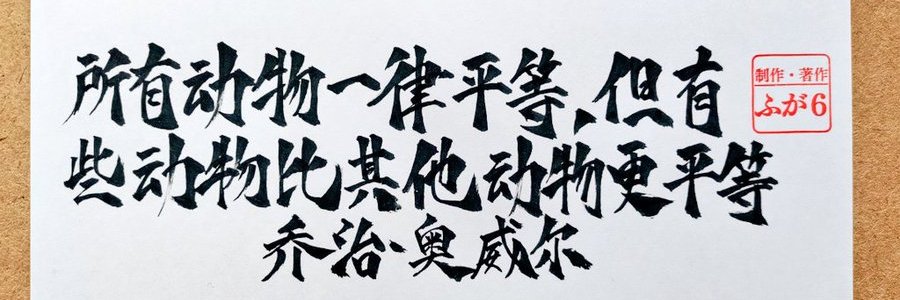 所有动物一律平等、但有
些动物比其他动物更平等
乔治·奥威尔
制作・著作
ふが6